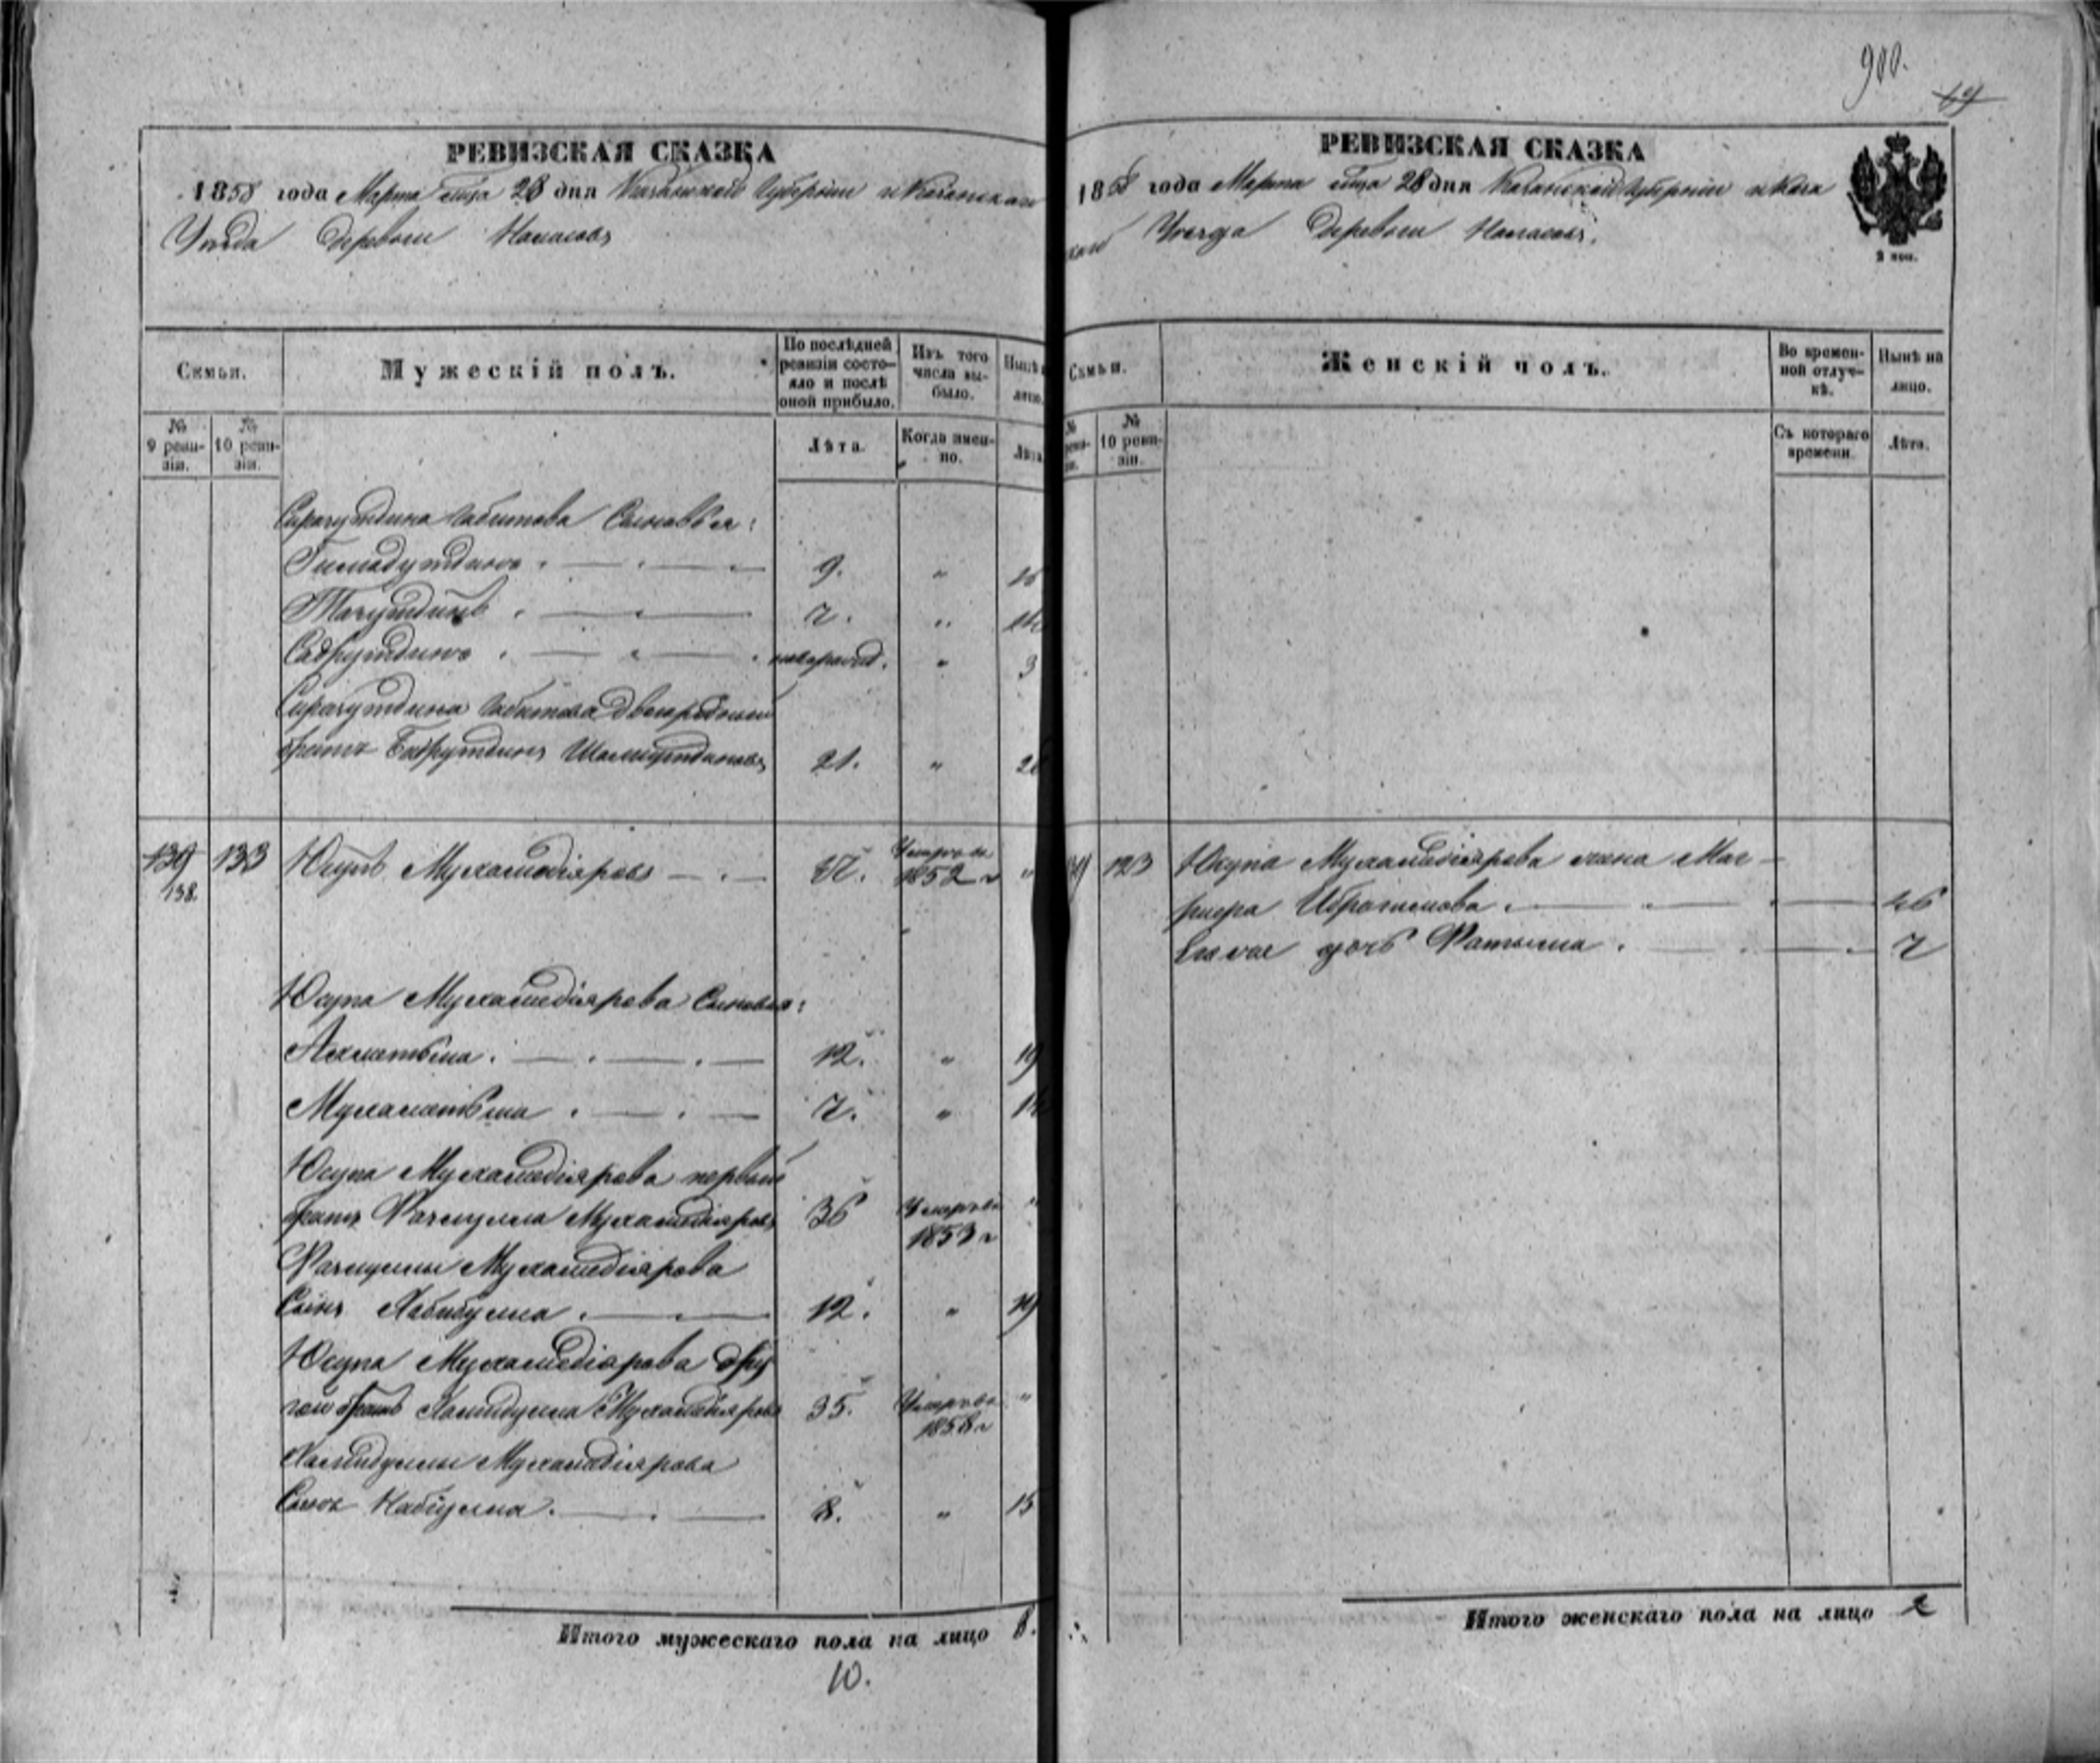 900.
19
РЕВИЗСКАЯ СКАЗКА
1858 года Марта м̃ца 28 дня Казанской Губернiи и Казанскаго
Уѣзда Деревни
Семьи.
Мужескiй полъ.
По послѣдней ревизiи состояло и послѣ оной прибыло.
Изъ того числа выбыло.
Нынѣ лицо.
№ 9 ревизiи.
№ 10 ревизiи.
Лѣта.
Когда именно.
Лѣта
Сиразутдина Габитова Сыновья:
9. " 16
Тазутдинъ 7. " 14
Садрутдинъ новорожд. " 3
Сиразутдина Габитова двоюродный
братъ Бадрутдинъ 21. " 28
139 133 Юсупъ Мухаметдiяровъ Умеръ въ
138. 1852 г "
Юсупа Мухаметдiярова Сыновья:
Ахметьша 12. " 19
Мухаметьша 7. " 14
Юсупа Мухаметдiярова первый
братъ Мухаметдiяровъ 36 Умеръ въ "
1853 г
Мухаметдiярова
Сынъ Хабибулла 12. " 19
Юсупа Мухаметдiярова дру
гой братъ Хамидулла Мухаметдiяровъ 35. Умеръ въ "
1858 г
Хамидуллы Мухаметдiярова
Сынъ Набiулла 8. " 15
Итого мужескаго пола на лицо 8.
10.
РЕВИЗСКАЯ СКАЗКА
1858 года Марта м̃ца 28 дня Казанской Губернiи и Каза
нскаго Уѣзда Деревни
2 коп.
Семьи.
Женскiй полъ.
Во временной отлучкѣ.
Нынѣ на лицо.
№ 10 ревизiи.
Съ котораго времени.
Лѣта.
123 Юсупа Мухаметдiярова жена Маг-
Ибрагимова 46
Ея дочь Фатыма 7
Итого женскаго пола на лицо 2